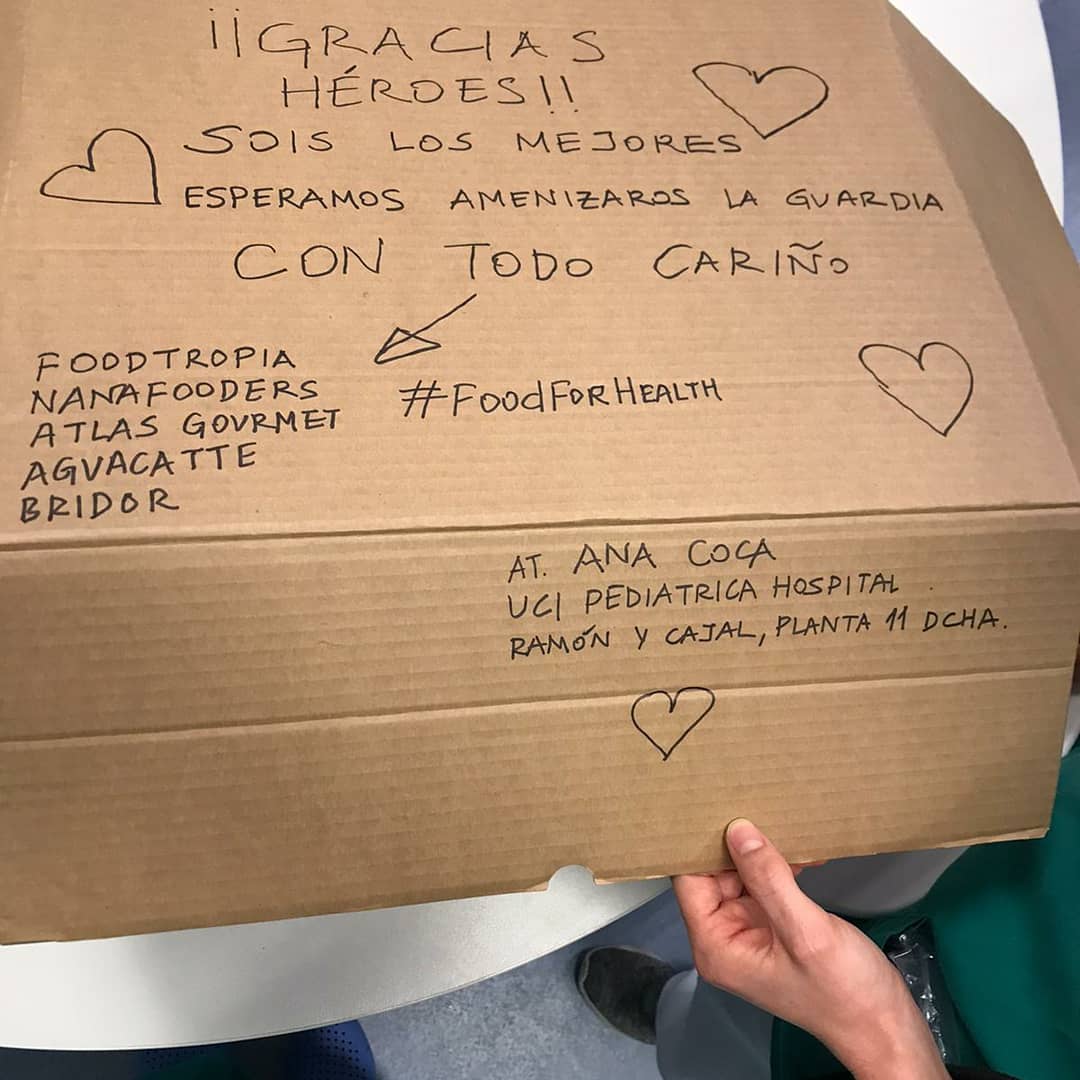 ¡¡GRACIAS
HÉROES!!
SOIS LOS MEJORES
ESPERAMOS AMENIZAROS LA GUARDIA
CON TODO CARIÑO
FOODTROPIA
NANAFOODERS
ATLAS GOURMET
AGUACATTE
BRIDOR
#FOODFORHEALTH
AT. ANA COCA
UCI PEDIATRICA HOSPITAL
RAMÓN Y CAJAL, PLANTA 11 DCHA.